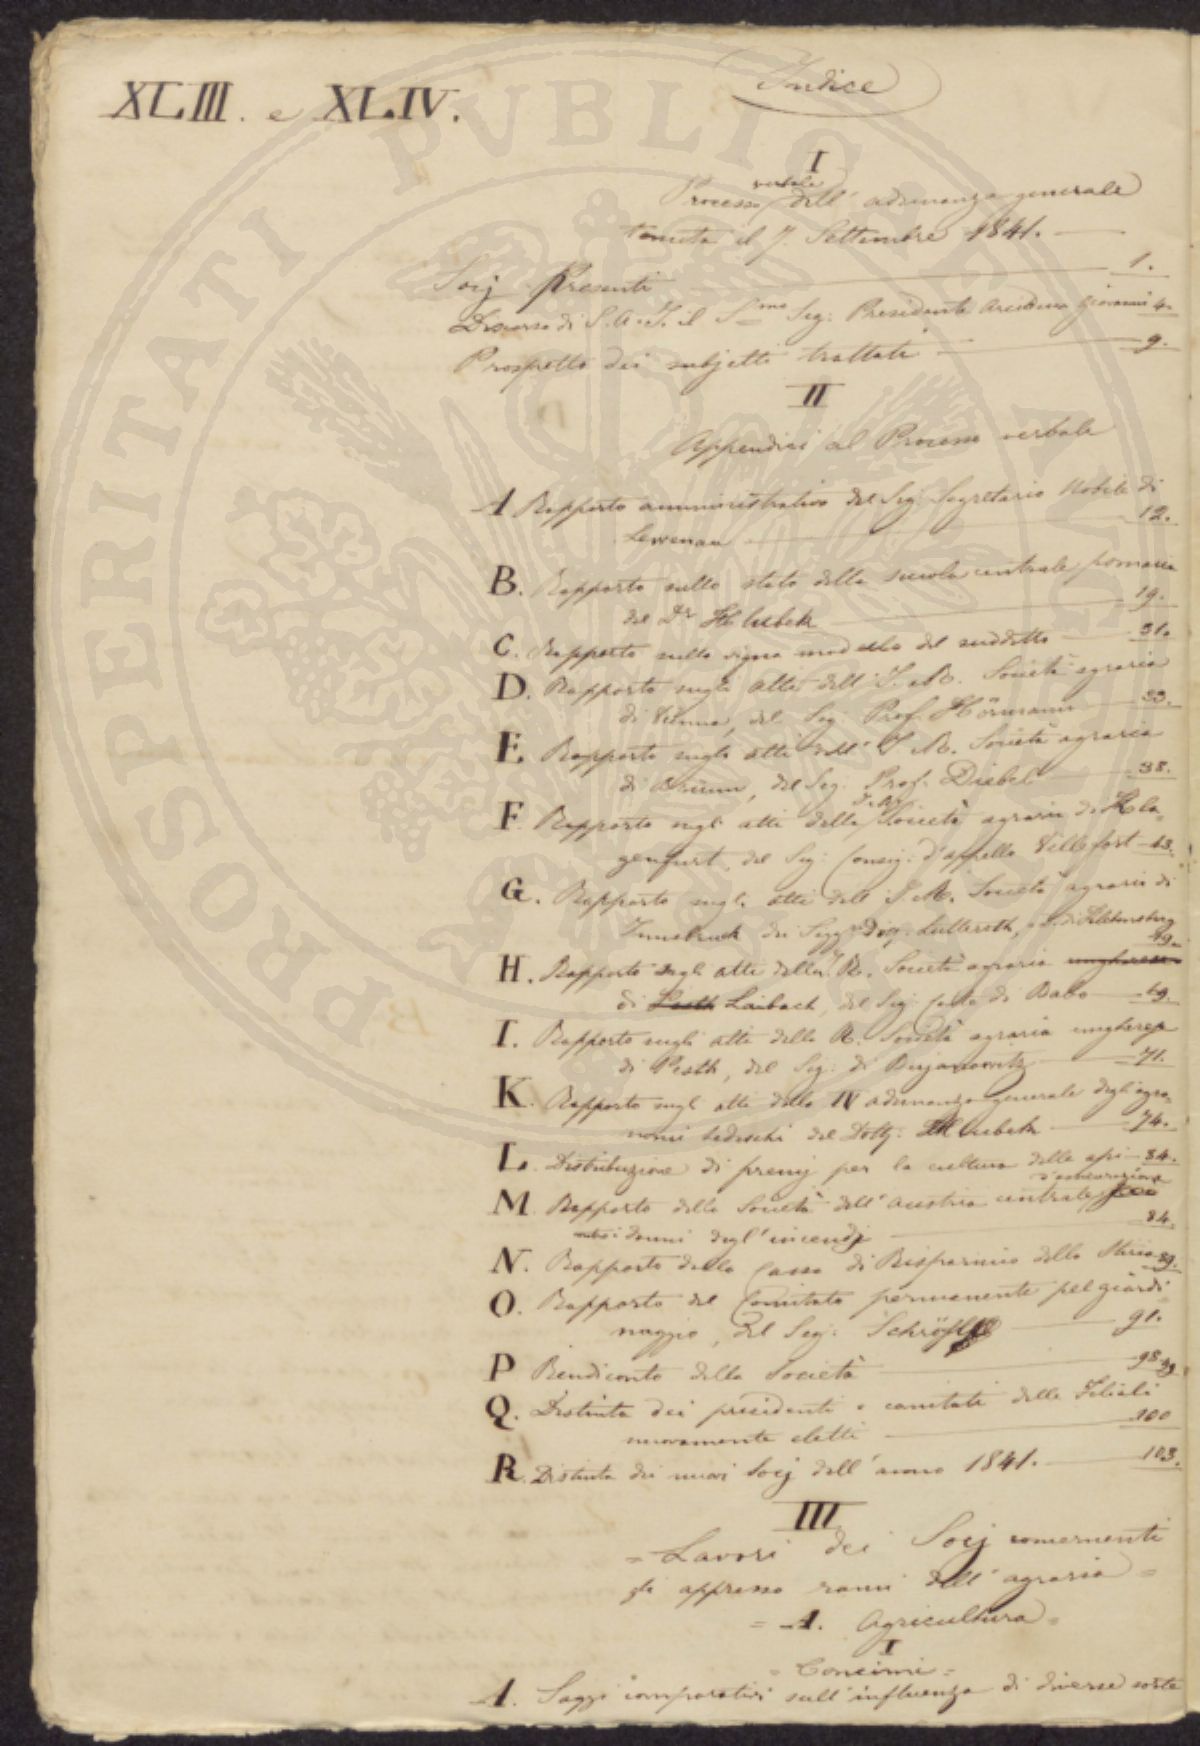 Indice
XLIII. e XLIV.
I
Processo verbale dell' adunanza generale
tenuta il 7. Settembre 1841.
Socj presenti 1.
Discorso di S. A. I. il S.mo Sig: Presidente Arciduca Giovanni 4.
Prospetto dei subjetti trattati 9.
II
Appendici al Processo verbale
A Rapporto amministrativo del Sig: Segretario Nobile di
12.
B. Rapporto sullo stato della scuola centrale pomaria
del Dr Hlubek 19.
C. Rapporto sulla vigna modello del suddetto 31.
D. Rapporto sugli atti dell' I. R. Società agraria
di Vienna, del Sig: Prof. Hörmann 33.
E Rapporto sugli atti dell' I. R. Società agraria
di Brünn, del Sig: Prof. Diebel 38.
F Rapporto sugli atti della I. R. Società agraria di Kla-
genfurt, del Sig: Consig: d'appello Villefort 43.
G. Rapporto sugli atti dell' I. R. Società agraria di
Innsbruck dei Sigg. Lutteroth,
49.
H. Rapporto sugli atti della I. R. Società agraria ungherese
di Pesth Laibach, del Sig: Conte di Babo 69.
I. Rapporto sugli atti della R. Società agraria ungherese
di Pesth, del Sig: di 71.
K. Rapporto sugli atti della IV adunanza generale degli agro-
nomi tedeschi del Dott: Hlubek 74.
L. Distribuzione di premj per la cultura delle api 84.
M Rapporto della Società dell' Austria centrale d'assicurazione
danni degl' incendj 84.
N. Rapporto della Cassa di Risparmio della Stiria 89.
O. Rapporto del Comitato permanente pel giardi-
naggio, del Sig: 91.
P Rendiconto della Società 98
Q. Distinta dei presidenti e comitati delle Filiali
nuovamente eletti 100
R. Distinta dei nuovi Socj dell' anno 1841. 103.
III
= Lavori dei Socj concernenti
gli appresso rami dell' agraria =
= A. Agricultura =
I
= Concimi =
A. Saggi comparativi sull' influenza di diverse sorte
PROSPERITATI PVBLICAE AVGENDAE